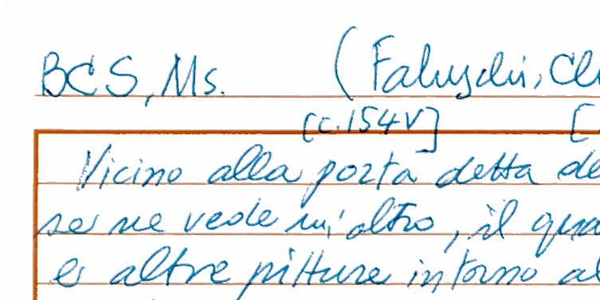 BCS, Ms. (Faluschi, Ch
[c.154v] [
Vicino alla porta detta de
se ne vede un'altro, il qua
e altre pitture intorno al